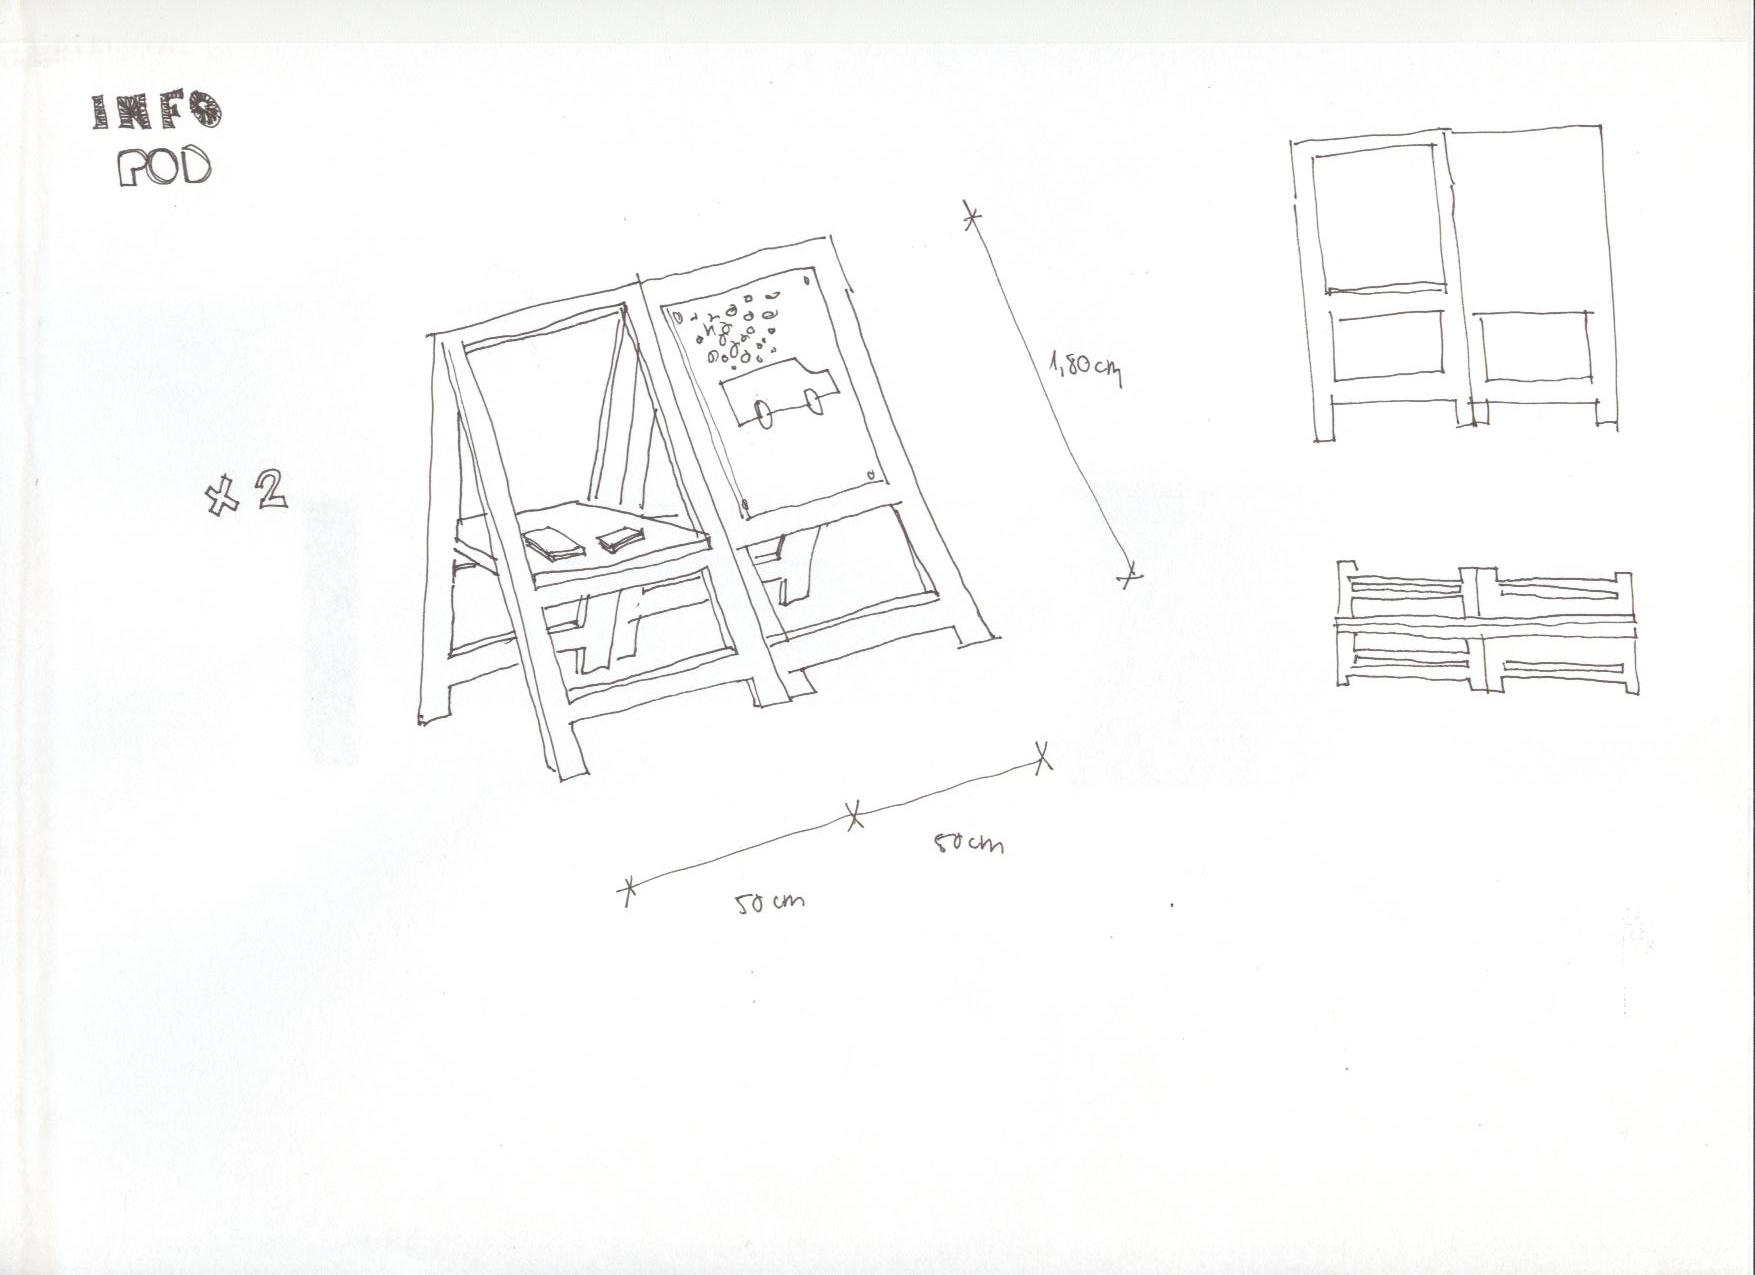 INFO
POD
x 2
1,80cm
50cm
50cm